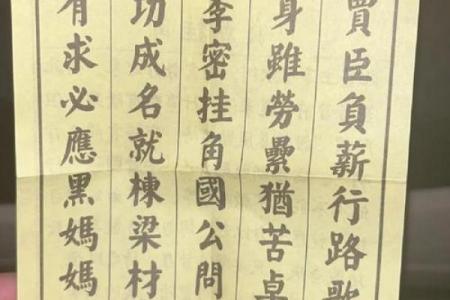 買臣負薪行路歌
身雖勞纍猶苦卓
李密挂角國公問
功成名就棟梁材
有求必應黑媽媽